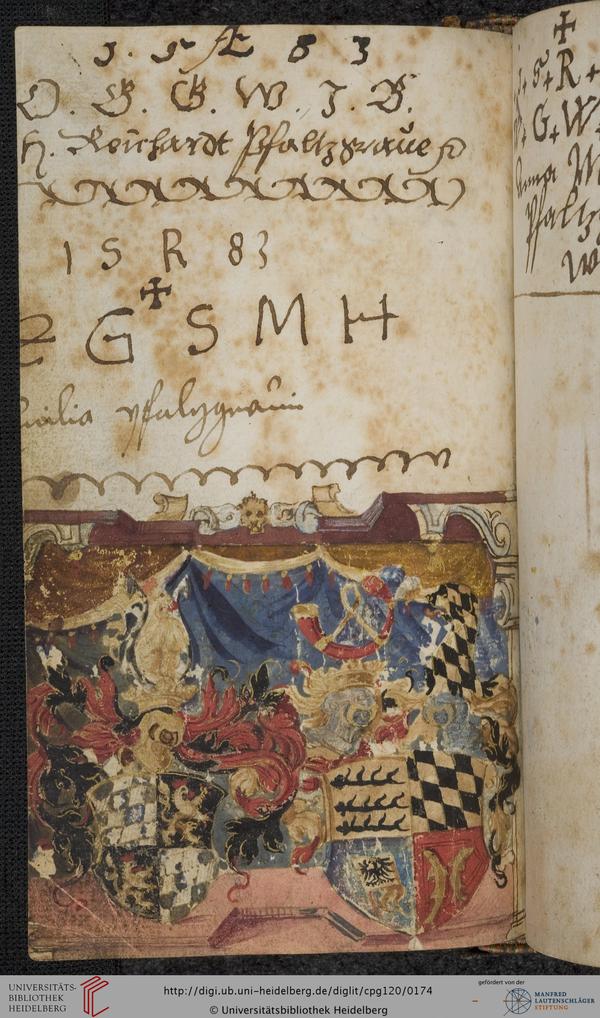 1 · 5 Æ 8 3
O. G. G. W. J. B.
H. Reichardt Pfaltzgraue
1 S R 83
G S M H
pfaltzgrauin
1 · S + R +
G + W +
Anna M
Pfaltz
W
UNIVERSITÄTS-
BIBLIOTHEK
HEIDELBERG
http://digi.ub.uni-heidelberg.de/diglit/cpg120/0174
© Universitätsbibliothek Heidelberg
gefördert von der
MANFRED
LAUTENSCHLÄGER
STIFTUNG